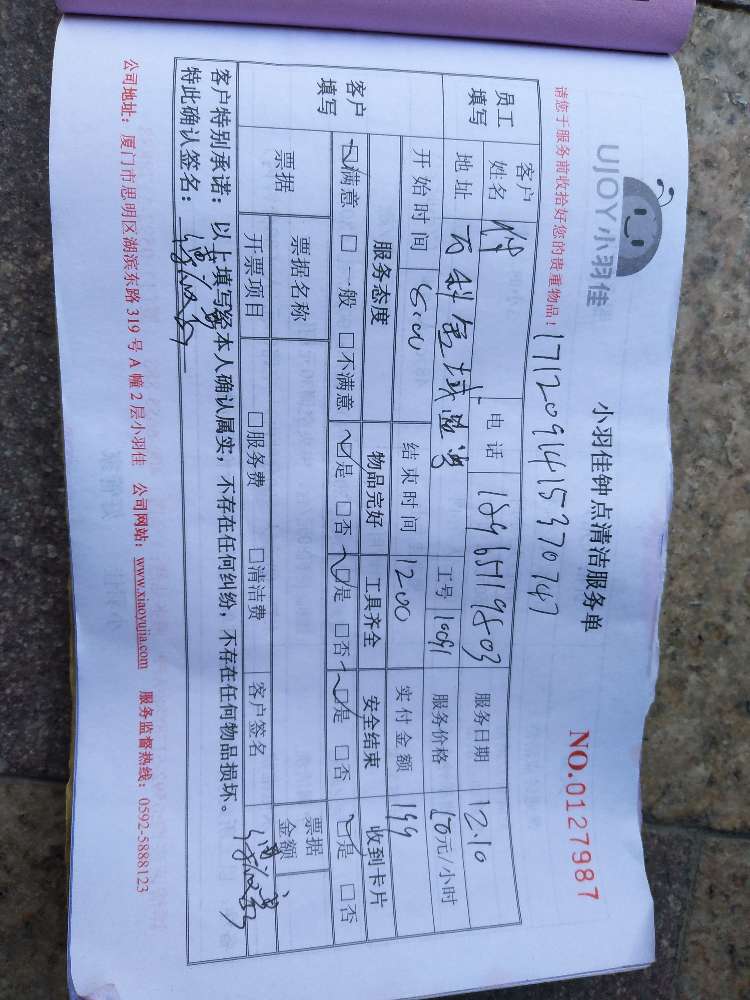 UJOY小羽佳
小羽佳钟点清洁服务单
NO.0127987
请您于服务前收拾好您的贵重物品!
171209141537074
员工填写 客户姓名 电话 18965119803 服务日期 12.10
地址 万科金域蓝湾 工号 10091 服务价格 50元/小时
开始时间 8:00 结束时间 1200 实付金额 199
客户填写 服务态度 物品完好 工具齐全 安全结束 收到卡片
☑满意 □一般 □不满意 ☑是 □否 ☑是 □否 ☑是 □否 ☑是 □否
票据 票据名称 票据金额
开票项目 □服务费 □清洁费 客户签名
客户特别承诺:以上填写经本人确认属实,不存在任何纠纷,不存在任何物品损坏。
特此确认签名:
公司地址:厦门市思明区湖滨东路 319 号 A 幢 2 层小羽佳 公司网站:www.xiaoyujia.com 服务监督热线:0592-5888123